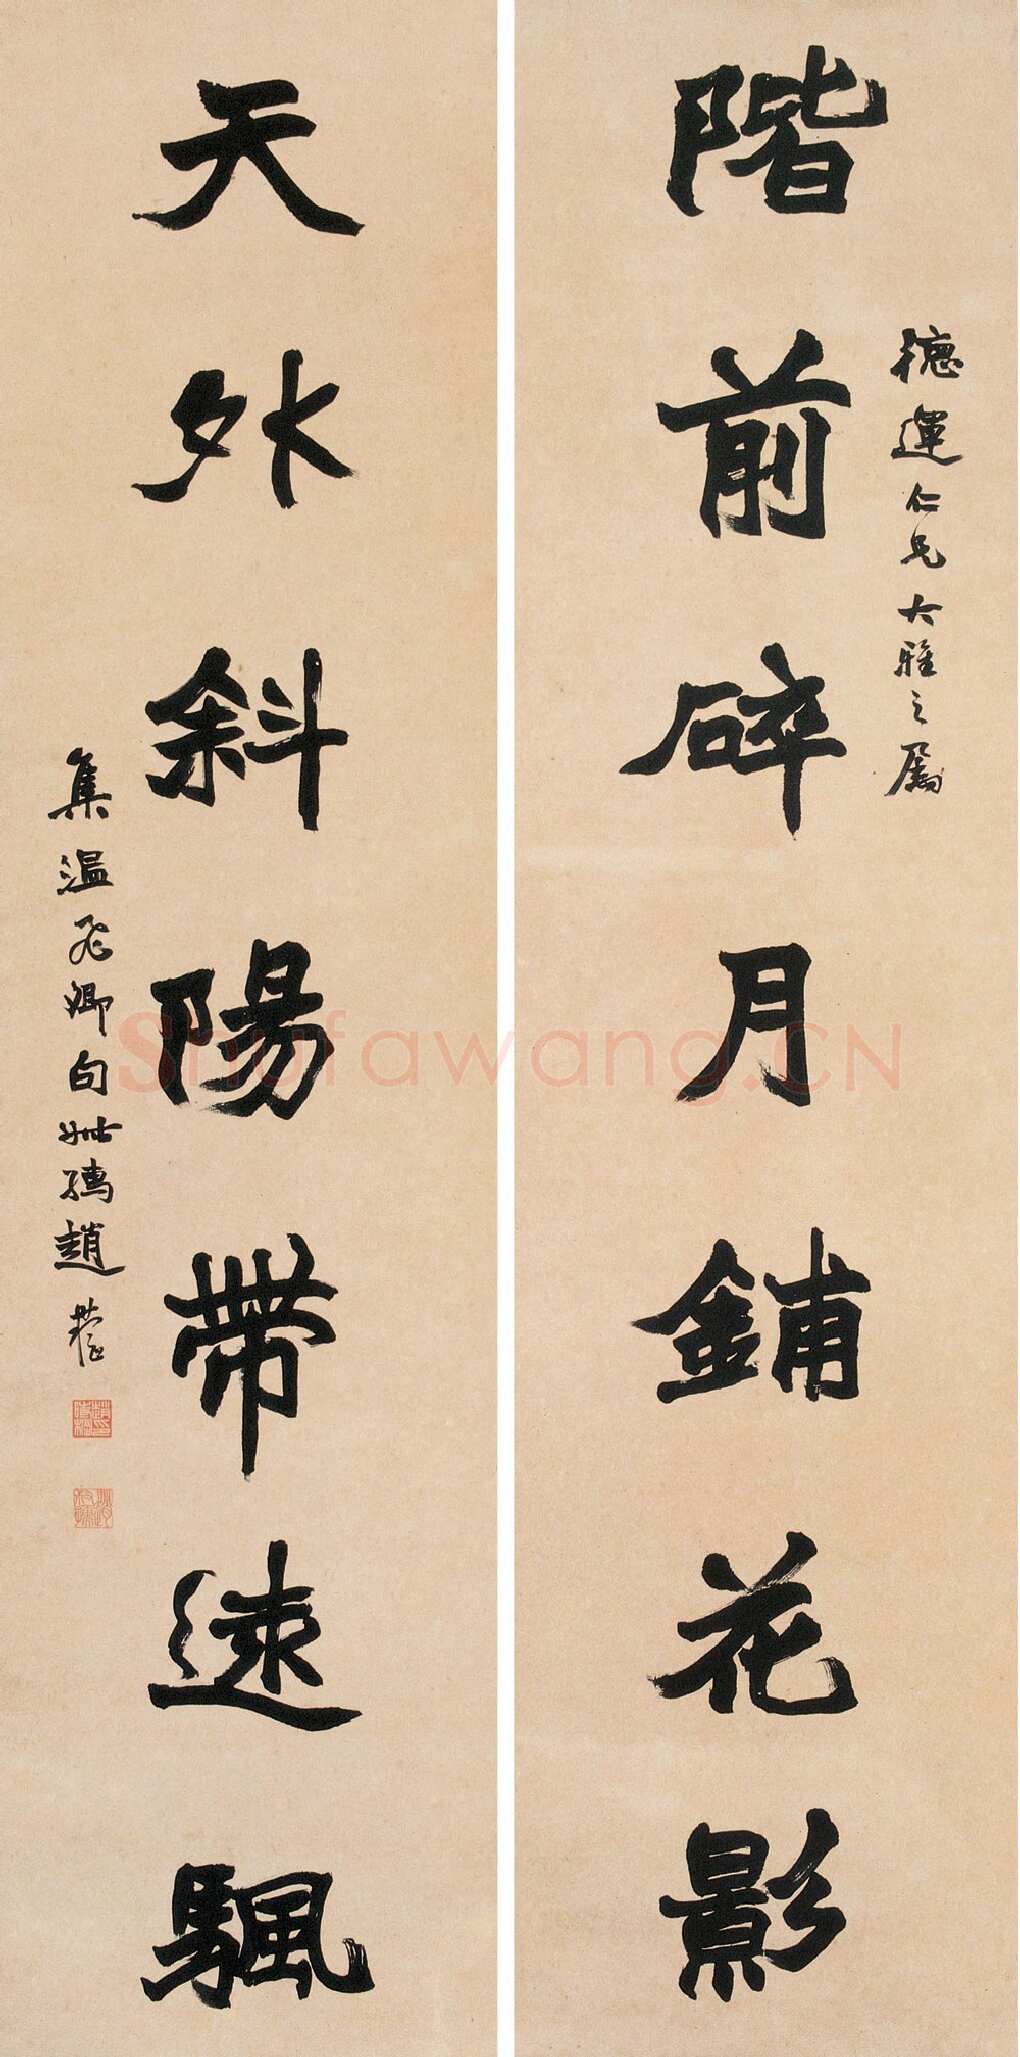 德運仁兄大雅之屬
階前碎月鋪花影
天外斜陽帶遠颿
集溫飛卿句 趙
Shufawang.CN